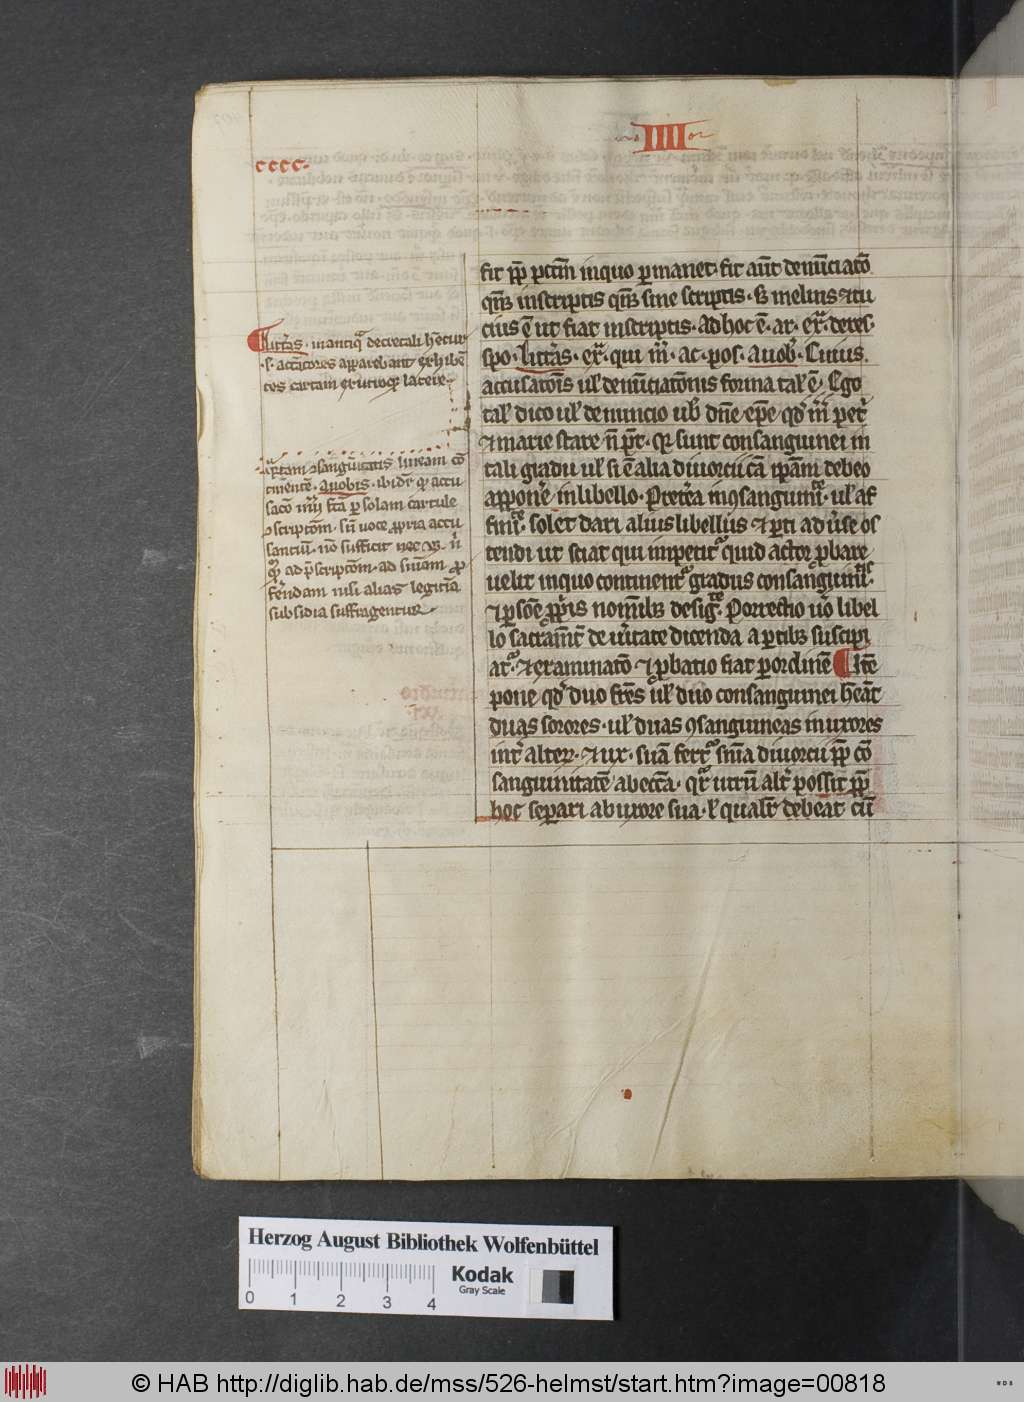 IIIIor
cccc.
fit ꝓp̄ pctm̄ in quo ꝑmanet. fit aūt denūciatō
qn̄qꝫ in scriptis qn̄qꝫ sine scriptis. sꝫ melius ⁊ tu
cius ē ut fiat in scriptis. ad hoc ē. ar. ex̄. de res
spo. litt̄as. ex̄. qui m̄. ac. pos. a uob̄. Cuius
accusatōis ul' denūciatōnis forma tal' ē. Ego
tal' dico ul' denuncio uob̄ dn̄e ep̄e qd̄ m̄ pet̄
⁊ marie stare n̄ p̄t. qꝛ sunt consanguinei in
tali gradu ul' si ē alia diuorcii cā ip̄am debeo
apponē in libello. Pret̄ea in ꝯsanguin̄. ul' af
fin̄. solet dari alius libellus ⁊ ꝑti aduˢse os
tendi ut sciat qui impetit̄ quid actor ꝓbare
uelit in quo continent̄ gradus consanguin̄.
⁊ ꝑsōe ꝓpriis nomībꝫ desiḡ. Porrectio uō libel
lo sacram̄t̄ de uitate dicenda a ꝑtibꝫ suscipi
at̄. ⁊ examinatō ⁊ ꝓbatio fiat ꝑ ordinē ¶ Itē
pone qd̄ duo frēs ul' duo consanguinei hēāt
duas sorores. ul' duas ꝯsanguineas in uxores
int̄ alterꝝ. ⁊ ux. suā fert̄ sn̄ia diuorcii ꝓp̄ cō
sanguinitatē abiectā. qr̄ utrū alt̄ possit ꝓp̄
hoc separi ab uxore sua. ⁊ qualit̄ debeat cū
¶ Litt̄as. in antiq̄ decretali hētur
.s. accatores apparebant exhibē
tes cartam ex utroqꝫ latere.
q̄rtam ꝯsangu̅itatis lineam cō
tinentē. A uobis. ibidē qꝛ accu
satō m̄ fc̄a ꝑ solam cartule
ꝯscriptōm. sn̄ uoce ꝓpria accu
santiū. nō sufficit nec
ad p̄scriptōm. ad sn̄iam ꝓ
ferendam nisi alias legitīa
subsidia suffragentur.
Herzog August Bibliothek Wolfenbüttel
0 1 2 3 4
Kodak
Gray Scale
© HAB http://diglib.hab.de/mss/526-helmst/start.htm?image=00818